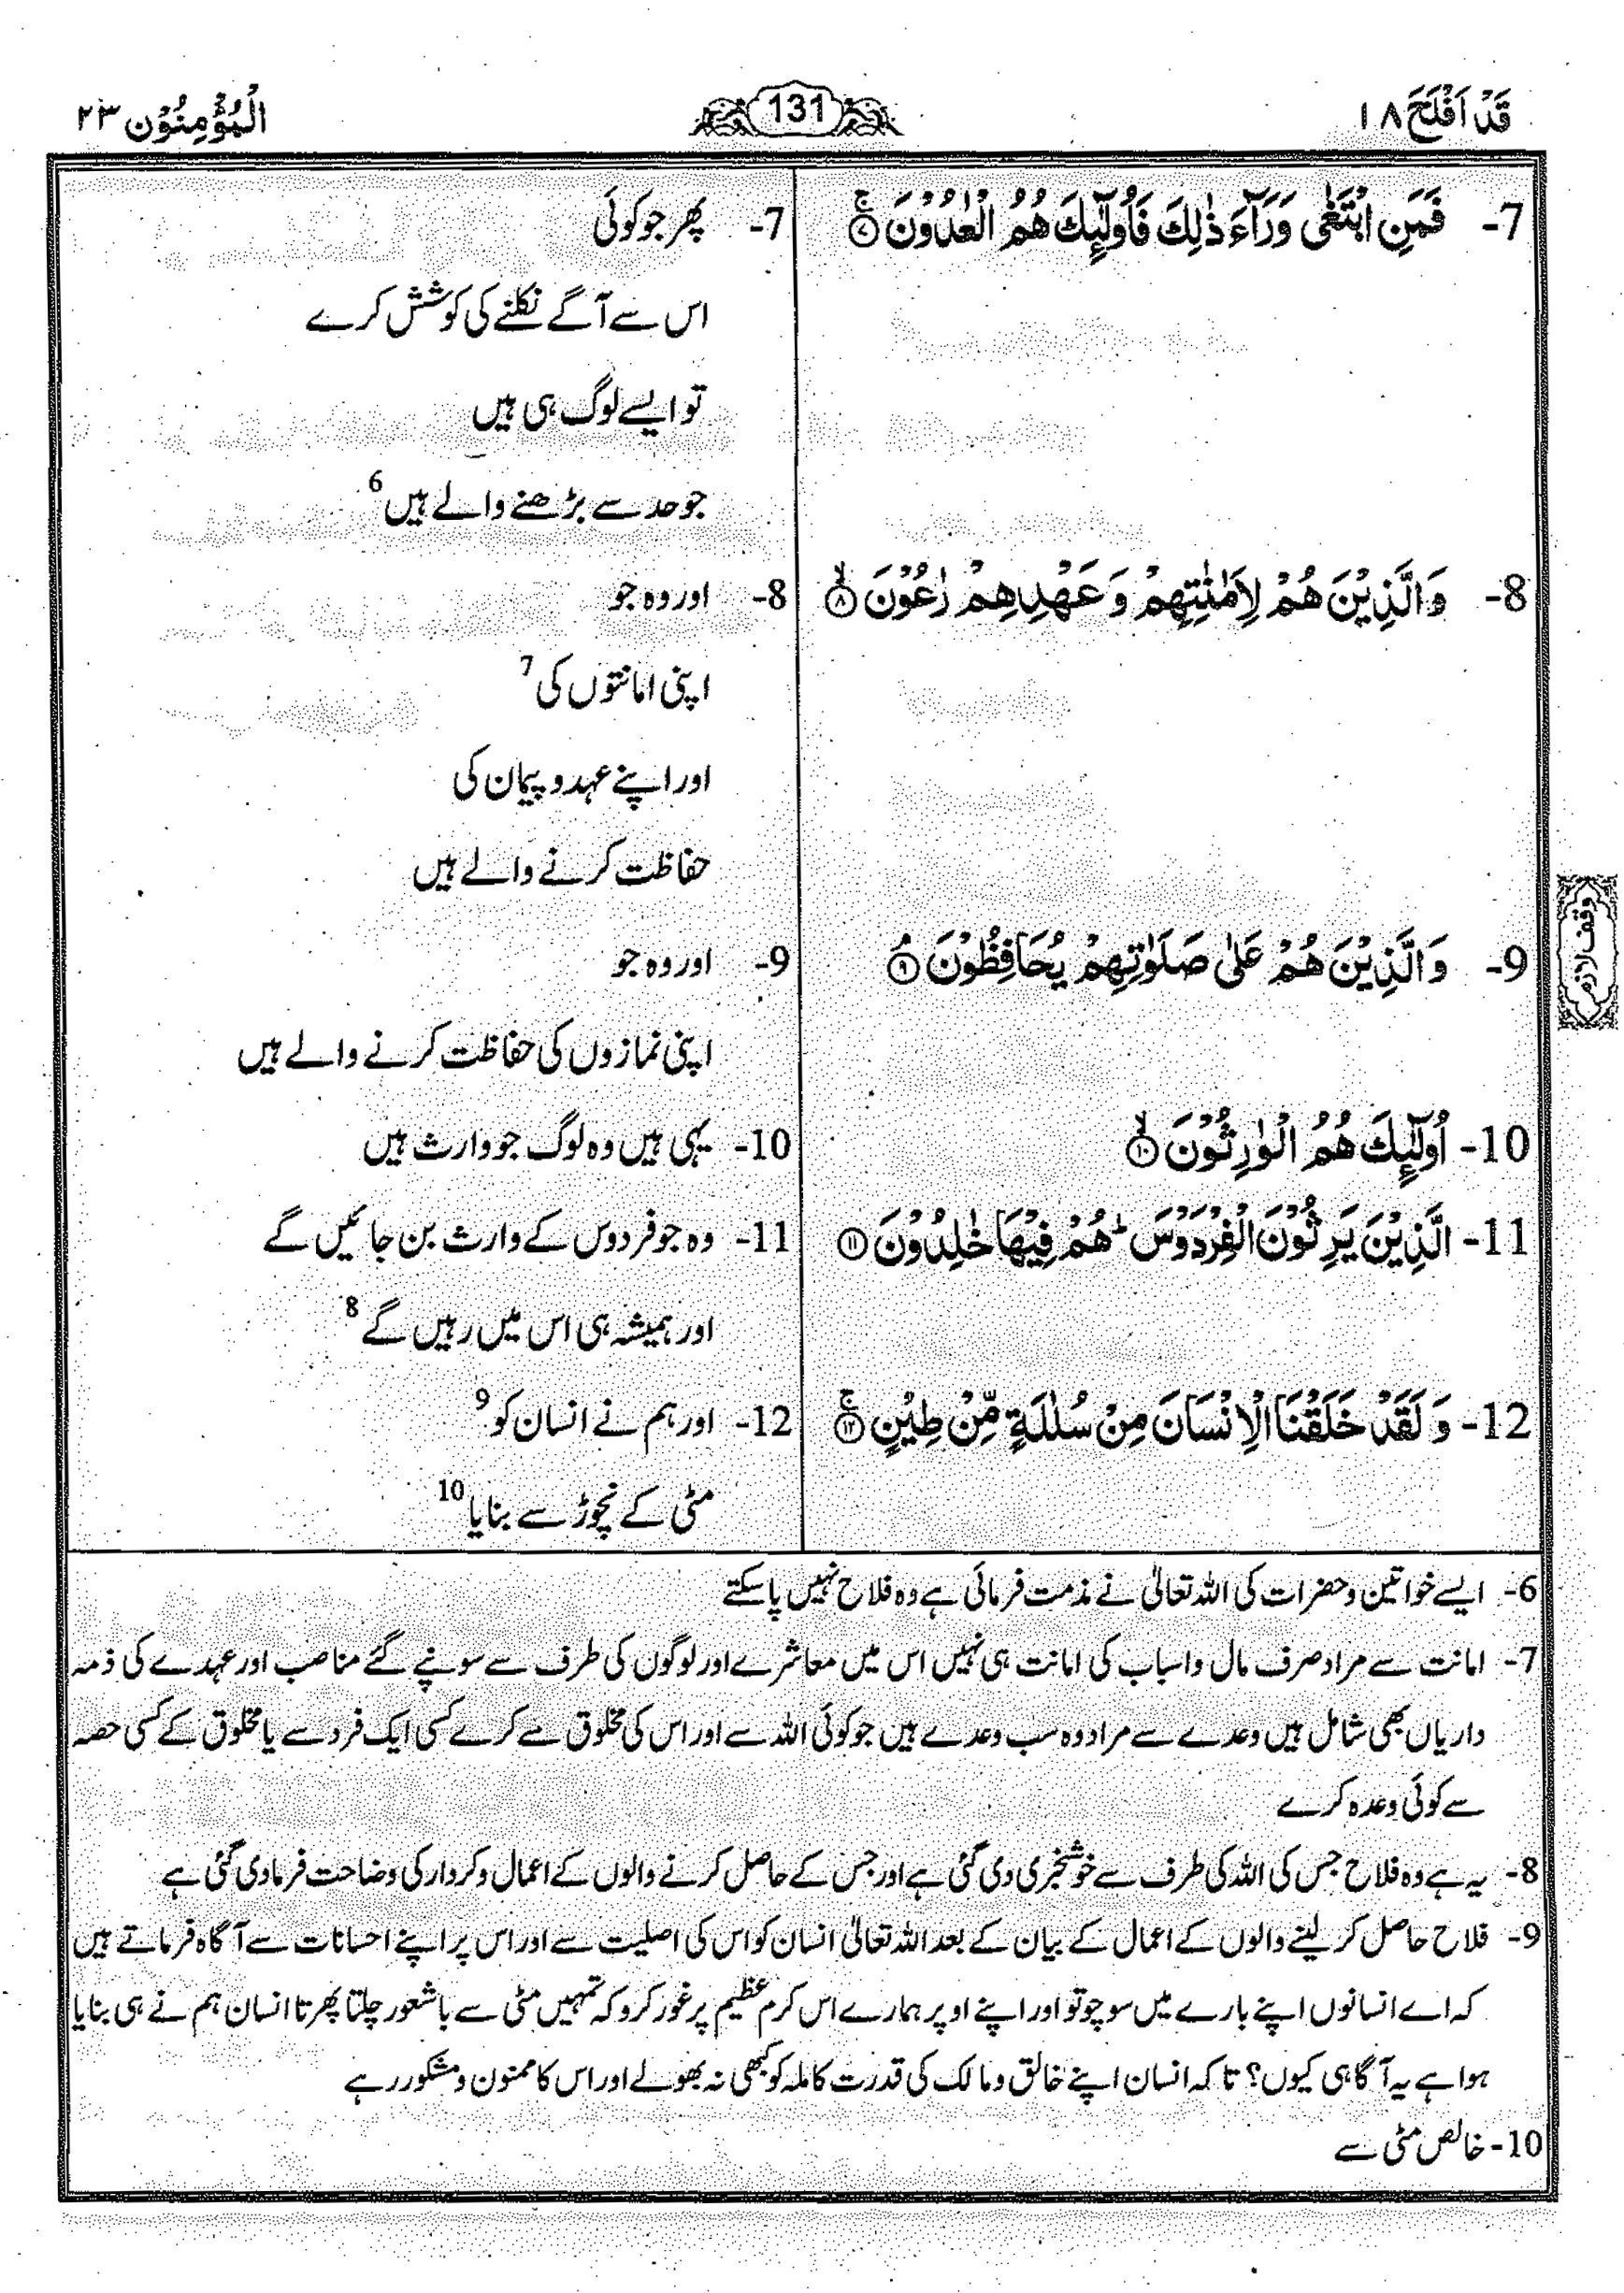 قَدْ اَفْلَحَ ۱۸
131
الْمُؤْمِنُوْن ۲۳
7- فَمَنِ ابْتَغٰى وَرَآءَ ذٰلِكَ فَاُولٰٓئِكَ هُمُ الْعٰدُوْنَ ۚ ۷
7- پھر جو کوئی
اس سے آگے نکلنے کی کوشش کرے
تو ایسے لوگ ہی ہیں
جو حد سے بڑھنے والے ہیں 6
8- وَ الَّذِيْنَ هُمْ لِاَمٰنٰتِهِمْ وَ عَهْدِهِمْ رٰعُوْنَ ۙ ۸
8- اور وہ جو
اپنی امانتوں کی 7
اور اپنے عہد و پیمان کی
حفاظت کرنے والے ہیں
9- وَ الَّذِيْنَ هُمْ عَلٰى صَلَوٰتِهِمْ يُحَافِظُوْنَ ۘ ۹
وقف لازم
9- اور وہ جو
اپنی نمازوں کی حفاظت کرنے والے ہیں
10- اُولٰٓئِكَ هُمُ الْوٰرِثُوْنَ ۙ ۱۰
10- یہی ہیں وہ لوگ جو وارث ہیں
11- الَّذِيْنَ يَرِثُوْنَ الْفِرْدَوْسَ ؕ هُمْ فِيْهَا خٰلِدُوْنَ ۱۱
11- وہ جو فردوس کے وارث بن جائیں گے
اور ہمیشہ ہی اس میں رہیں گے 8
12- وَ لَقَدْ خَلَقْنَا الْاِنْسَانَ مِنْ سُلٰلَةٍ مِّنْ طِيْنٍ ۚ ۱۲
12- اور ہم نے انسان کو 9
مٹی کے نچوڑ سے بنایا 10
6- ایسے خواتین و حضرات کی اللہ تعالیٰ نے مذمت فرمائی ہے وہ فلاح نہیں پا سکتے
7- امانت سے مراد صرف مال و اسباب کی امانت ہی نہیں اس میں معاشرے اور لوگوں کی طرف سے سونپے گئے مناصب اور عہدے کی ذمہ
داریاں بھی شامل ہیں وعدے سے مراد وہ سب وعدے ہیں جو کوئی اللہ سے اور اس کی مخلوق سے کرے کسی ایک فرد سے یا مخلوق کے کسی حصہ
سے کوئی وعدہ کرے
8- یہ ہے وہ فلاح جس کی اللہ کی طرف سے خوشخبری دی گئی ہے اور جس کے حاصل کرنے والوں کے اعمال و کردار کی وضاحت فرما دی گئی ہے
9- فلاح حاصل کر لینے والوں کے اعمال کے بیان کے بعد اللہ تعالیٰ انسان کو اس کی اصلیت سے اور اس پر اپنے احسانات سے آگاہ فرماتے ہیں
کہ اے انسانوں اپنے بارے میں سوچو تو اور اپنے اوپر ہمارے اس کرم عظیم پر غور کرو کہ تمہیں مٹی سے باشعور چلتا پھرتا انسان ہم نے ہی بنایا
ہوا ہے یہ آگاہی کیوں؟ تا کہ انسان اپنے خالق و مالک کی قدرت کاملہ کو کبھی نہ بھولے اور اس کا ممنون و مشکور رہے
10- خالص مٹی سے